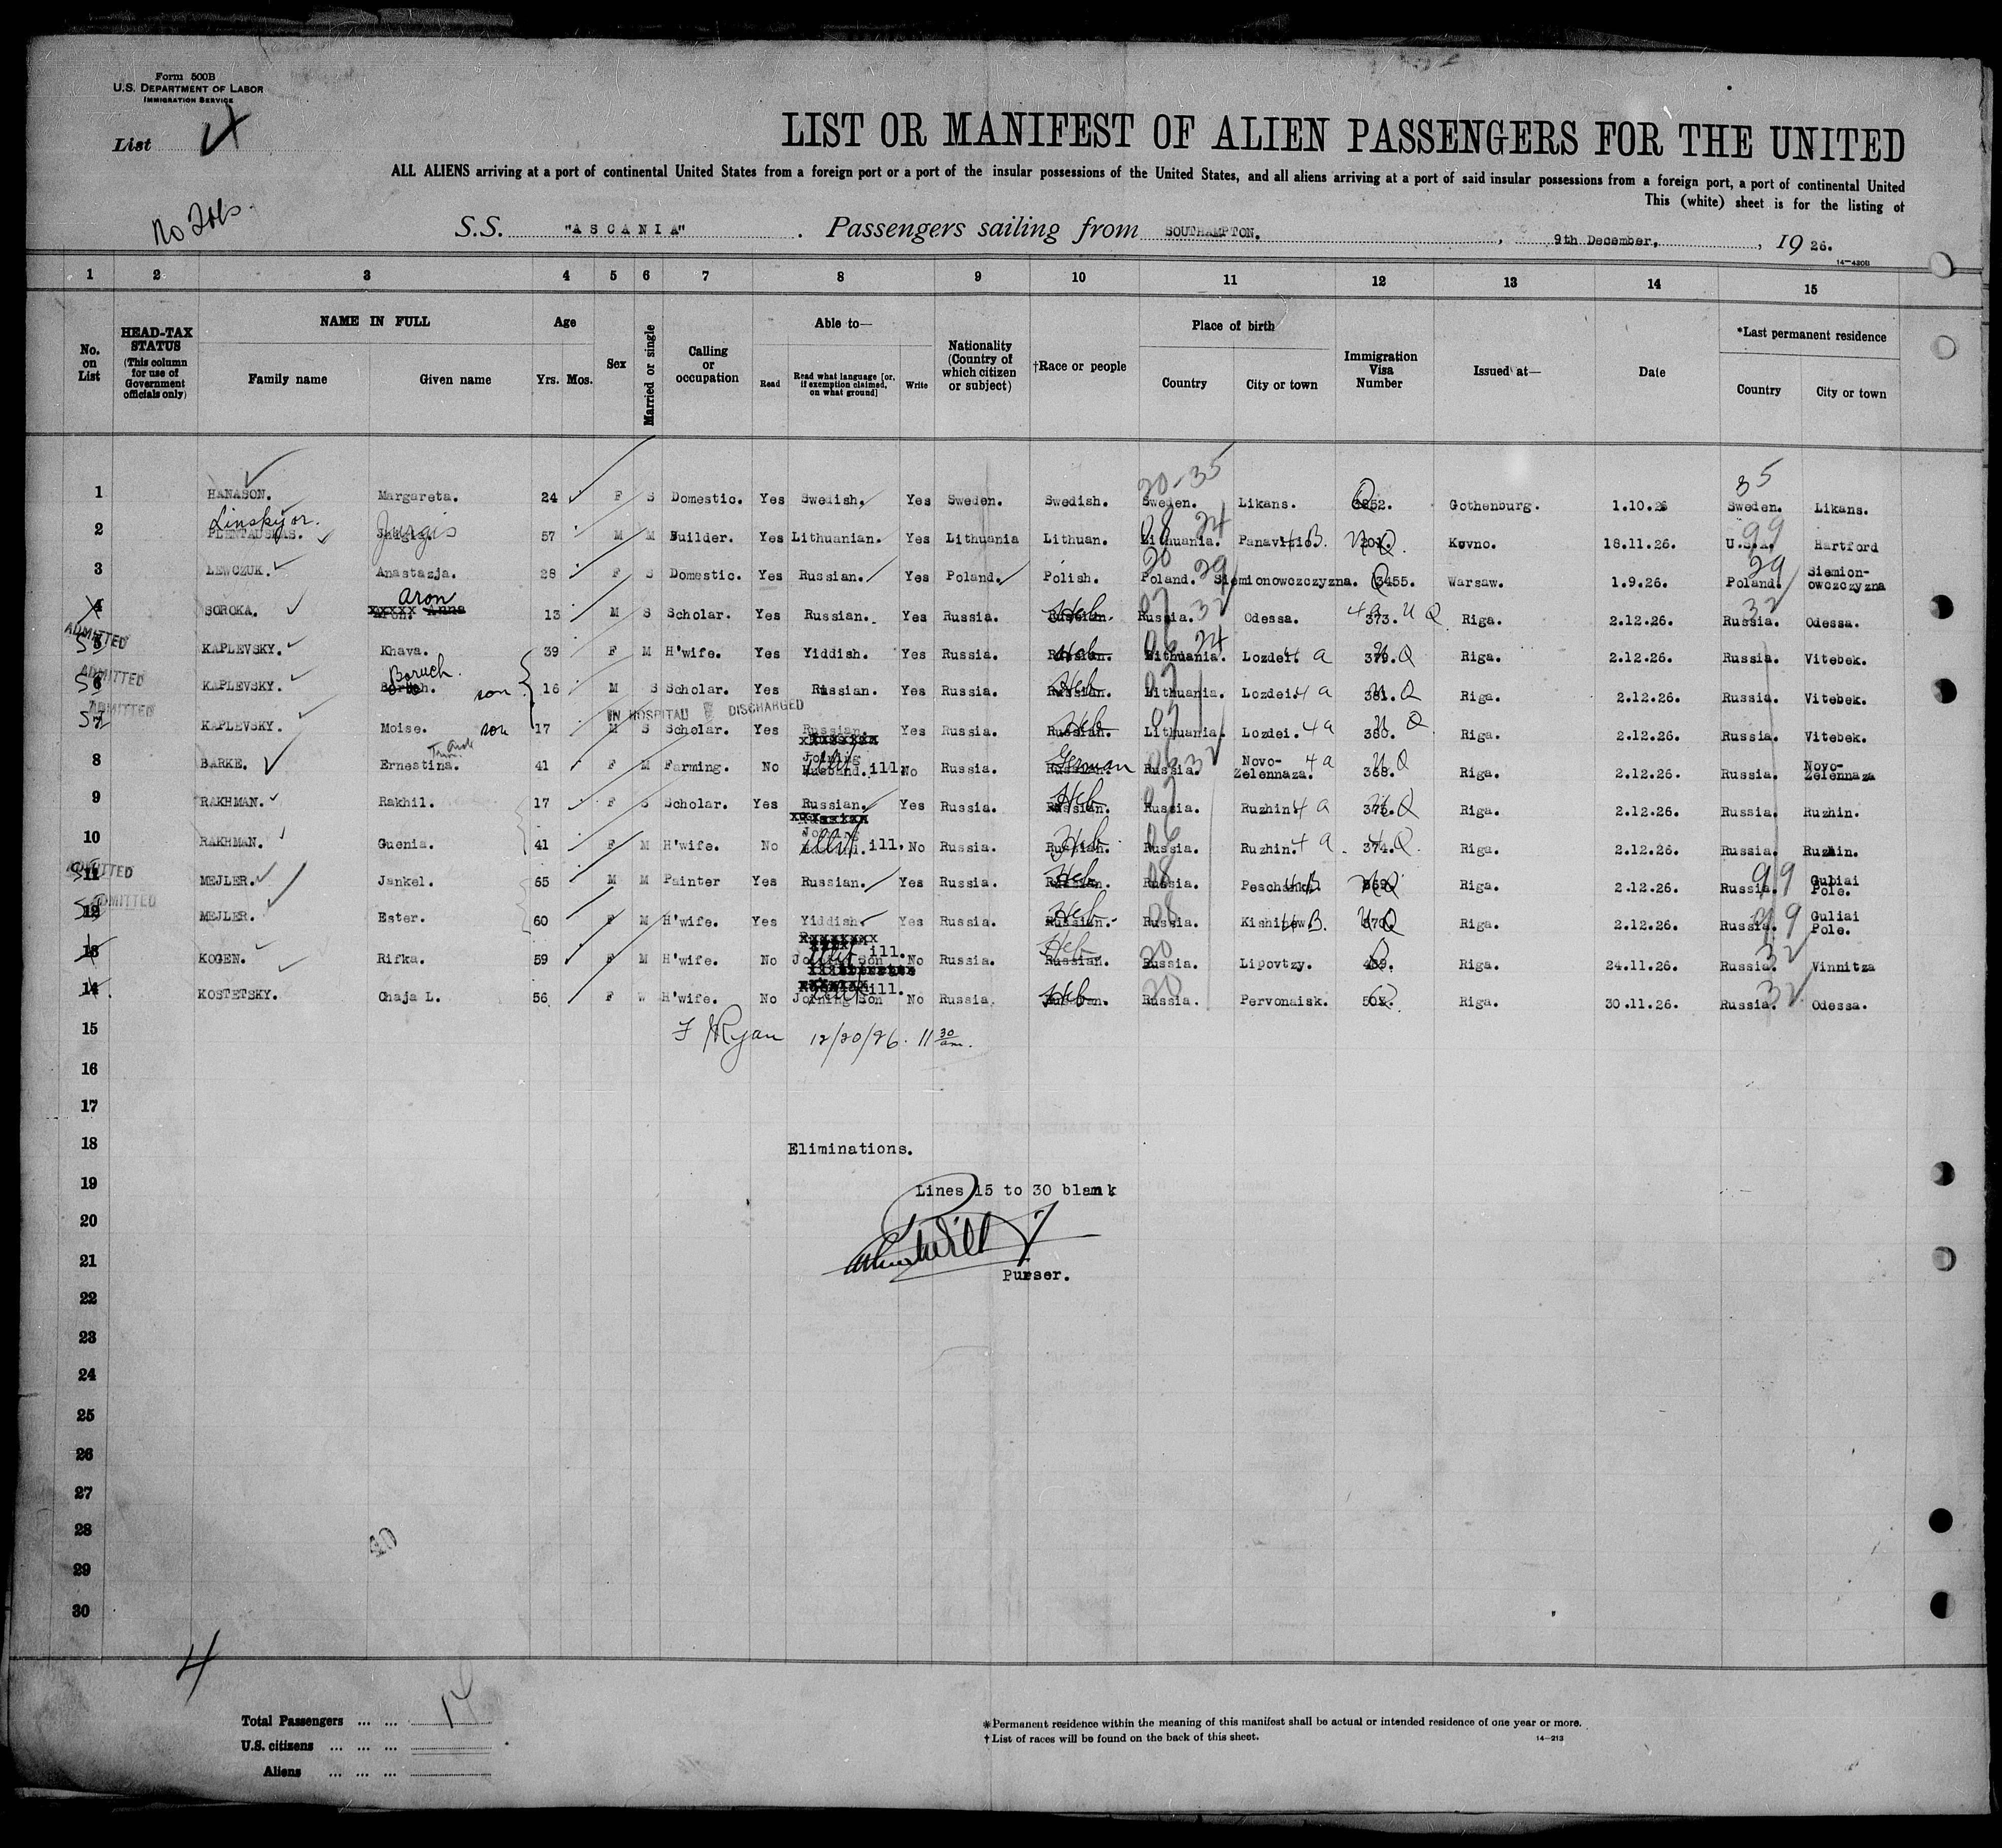 Form 500B
U.S. DEPARTMENT OF LABOR
IMMIGRATION SERVICE
List 4
LIST OR MANIFEST OF ALIEN PASSENGERS FOR THE UNITED
ALL ALIENS arriving at a port of continental United States from a foreign port or a port of the insular possessions of the United States, and all aliens arriving at a port of said insular possessions from a foreign port, a port of continental United
This (white) sheet is for the listing of
S.S. "ASCANIA". Passengers sailing from SOUTHAMPTON., 9th December., 1926.
14-420B
1 2 3 4 5 6 7 8 9 10 11 12 13 14 15
No. on List
HEAD-TAX STATUS (This column for use of Government officials only)
NAME IN FULL Family name Given name
Age Yrs. Mos.
Sex
Married or single
Calling or occupation
Able to— Read Read what language [or, if exemption claimed, on what ground] Write
Nationality (Country of which citizen or subject)
†Race or people
Place of birth Country City or town
Immigration Visa Number
Issued at—
Date
*Last permanent residence Country City or town
20-35 35
1 HANASON. Margareta. 24 F S Domestic. Yes Swedish. Yes Sweden. Swedish. Sweden. Likans. Gothenburg. 1.10.26 Sweden. Likans.
Linsky or
2 Jurgis 57 M M Builder. Yes Lithuanian. Yes Lithuania Lithuan. 08 24 Lithuania. Kovno. 18.11.26. U.S.A. 99 Hartford
3 LEWCZUK. Anastazja. 28 F S Domestic. Yes Russian. Yes Poland. Polish. 20 29 Poland. Siemionowczczyzna. 3455. Warsaw. 1.9.26. 29 Poland. Siemion-owczczyzna
Aron
4 SOROKA. Anna 13 M S Scholar. Yes Russian. Yes Russia. Heb Russian. 07 32 Russia. Odessa. 4a 373. Q Riga. 2.12.26. 32 Russia. Odessa.
ADMITTED
5 KAPLEVSKY. Khava. 39 F M H'wife. Yes Yiddish. Yes Russia. Heb Russian. 06 24 Lithuania. Lozdei. 4a 379. Q Riga. 2.12.26. Russia. Vitebek.
ADMITTED Boruch.
6 KAPLEVSKY. son 16 M S Scholar. Yes Russian. Yes Russia. Heb Russian. 07 Lithuania. Lozdei. 4a 381. Q Riga. 2.12.26. Russia. Vitebek.
ADMITTED IN HOSPITAL DISCHARGED
7 KAPLEVSKY. Moise. son 17 M S Scholar. Yes Russian. Yes Russia. Heb Russian. 07 Lithuania. Lozdei. 4a 380. Q Riga. 2.12.26. Russia. Vitebek.
8 BARKE. Ernestina. 41 F M Farming. No Joining Husband. ill. No Russia. German Russian. 06 32 Russia. Novo-Zelennaza. 4a 368. Q Riga. 2.12.26. Russia. Novo-Zelennaza
9 RAKHMAN. Rakhil. 17 F S Scholar. Yes Russian. Yes Russia. Heb Russian. 07 Russia. Ruzhin. 4a Q Riga. 2.12.26. Russia. Ruzhin.
10 RAKHMAN. Guenia. 41 F M H'wife. No Joining ill. No Russia. Heb Russian. 06 Russia. Ruzhin. 4a 374. Q Riga. 2.12.26. Russia. Ruzhin.
ADMITTED
11 MEJLER. Jankel. 65 M M Painter Yes Russian. Yes Russia. Heb Russian. 08 Russia. 4B Riga. 2.12.26. Russia. 99 Guliai Pole.
ADMITTED
12 MEJLER. Ester. 60 F M H'wife. Yes Yiddish. Yes Russia. Heb Russian. 08 Russia. 4B Riga. 2.12.26. Russia. 99 Guliai Pole.
13 KOGEN. Rifka. 59 F M H'wife. No Joining Son ill. No Russia. Heb Russian. 20 Russia. Lipovtzy. Riga. 24.11.26. Russia. 32 Vinnitza
14 KOSTETSKY. Chaja L. 56 F W H'wife. No Joining Son ill. No Russia. Heb Russian. 20 Russia. Pervonaisk. Riga. 30.11.26. Russia. 32 Odessa.
15 F Ryan 12/20/26. 11 30 am.
16
17
18 Eliminations.
19 Lines 15 to 30 blank
20
21 Purser.
22
23
24
25
26
27
28
29
30
4
Total Passengers ... ... 14
U.S. citizens ... ... ...
Aliens ... ... ...
*Permanent residence within the meaning of this manifest shall be actual or intended residence of one year or more.
†List of races will be found on the back of this sheet. 14-213